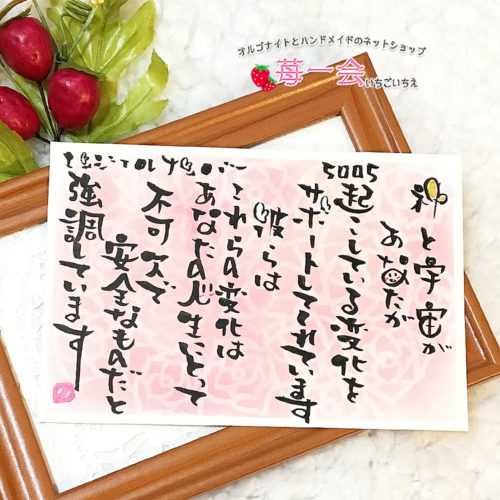 オルゴナイトとハンドメイドのネットショップ
苺一会いちごいちえ
神と宇宙が
あなたが
5005
起こしている変化を
サポートしてくれています
彼らは
これらの変化は
あなたの人生にとって
不可欠で
安全なものだと
強調しています
エンジェルナンバー